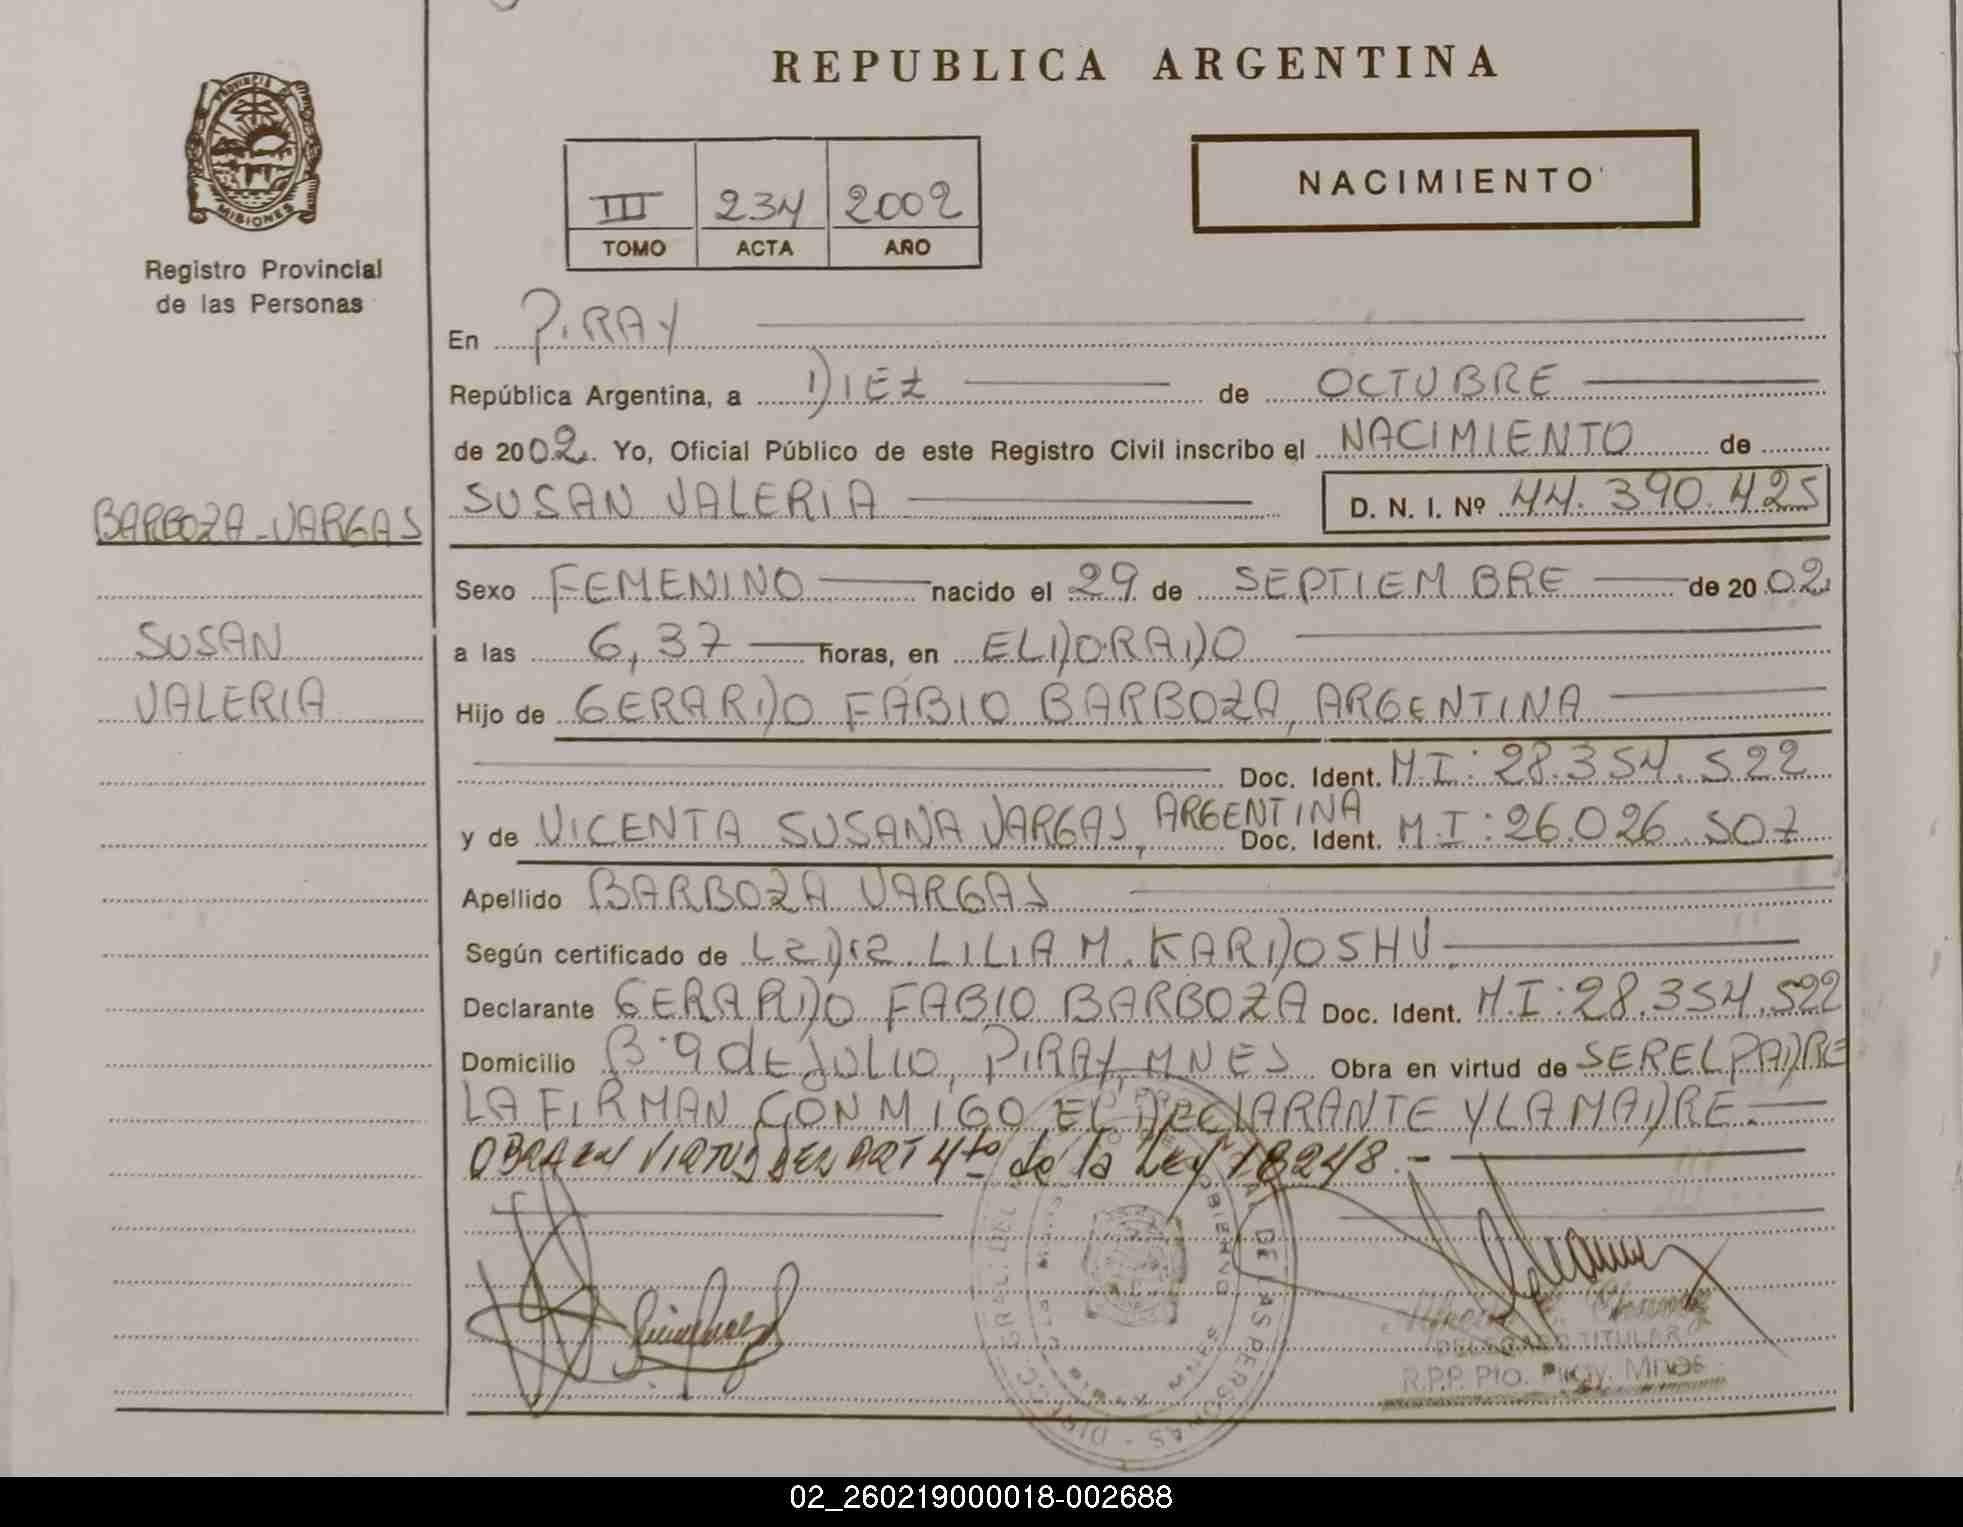 REPUBLICA ARGENTINA
PROVINCIA DE
MISIONES
Registro Provincial
de las Personas
III 234 2002
TOMO ACTA AÑO
NACIMIENTO
En PIRAY
República Argentina, a DIEZ de OCTUBRE
de 2002. Yo, Oficial Público de este Registro Civil inscribo el NACIMIENTO de
BARBOZA-VARGAS
SUSAN VALERIA D. N. I. Nº 44.390.425
Sexo FEMENINO nacido el 29 de SEPTIEMBRE de 2002
SUSAN
a las 6,37 horas, en ELDORADO
VALERIA
Hijo de GERARDO FABIO BARBOZA, ARGENTINA
Doc. Ident. M.I: 28.354.522
y de VICENTA SUSANA VARGAS, ARGENTINA Doc. Ident. M.I: 26.026.507
Apellido BARBOZA VARGAS
Según certificado de LILIA M. KARDOSHU
Declarante GERARDO FABIO BARBOZA Doc. Ident. M.I: 28.354.522
Domicilio B: 9 DE JULIO, PIRAY, MNES Obra en virtud de SER EL PADRE
LA FIRMAN CONMIGO EL DECLARANTE Y LA MADRE.
OBRA EN VIRTUD DEL ART 4to de la Ley 18248.-
DE LAS PERSONAS
DELEGADO TITULAR
R.P.P. Pto. Piray. Mnes
02_260219000018-002688